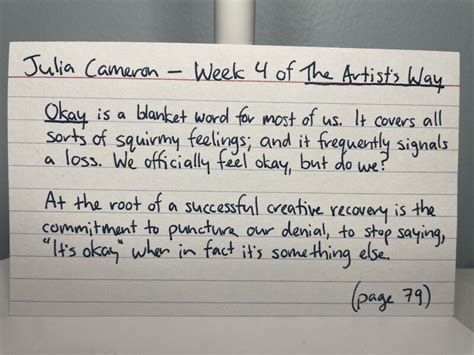 Julia Cameron – Week 4 of The Artist's Way
Okay is a blanket word for most of us. It covers all
sorts of squirmy feelings; and it frequently signals
a loss. We officially feel okay, but do we?
At the root of a successful creative recovery is the
commitment to puncture our denial, to stop saying,
"It's okay," when in fact it's something else.
(page 79)